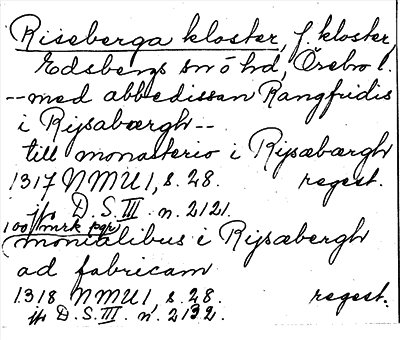 Riseberga kloster, f. kloster,
Edsbergs sn ö hd, Örebro l.
--med abbedissan Rangfridis
i Rijsabærgh--
till monasterio i Rijsæbærgh
1317 NMU 1, s. 28. regest.
jfr D. S. III n. 2121.
100 mrk pgr
monialibus i Rijsæbergh
ad fabricam
1318 NMU 1, s. 28. regest.
jfr D. S. III. n. 2132.